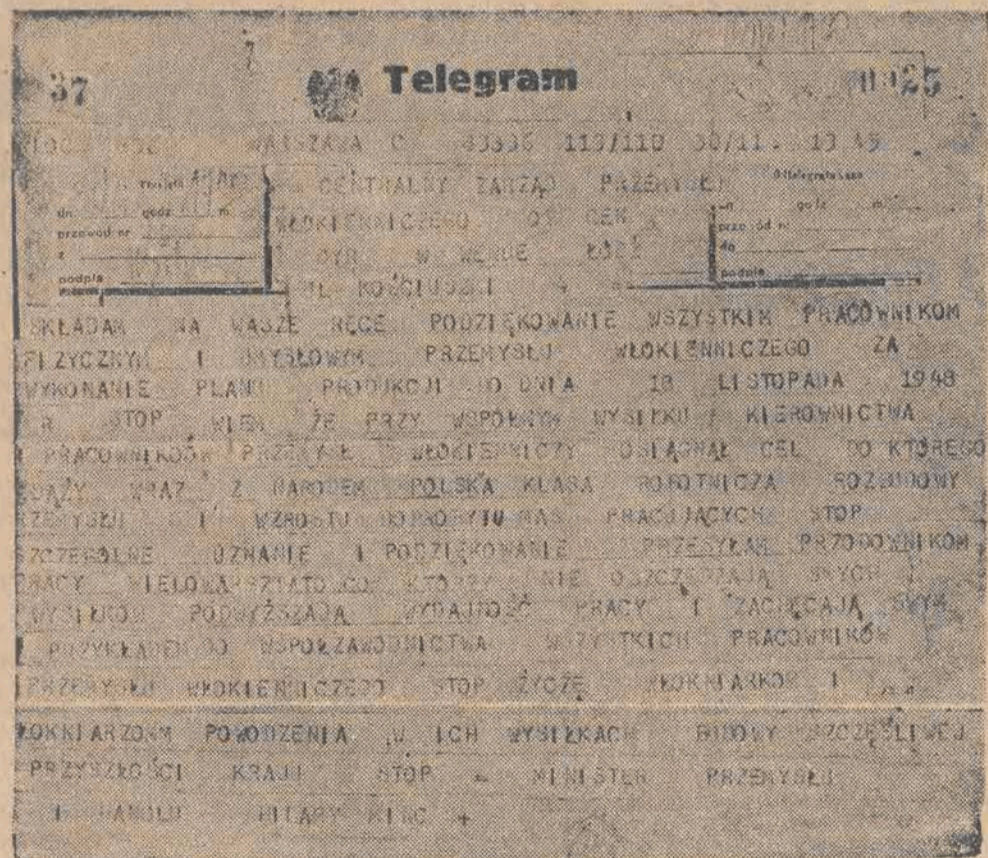 37 Telegram 25
WARSZAWA C 110/110 30/11. 13 45
CENTRALNY ZARZĄD PRZEMYSŁU
godz m. godz m.
WŁÓKIENNICZEGO
przewód nr przewód nr
z DYR W WENDE ŁÓDŹ do
podpis podpis
SKŁADAM NA WASZE RĘCE PODZIĘKOWANIE WSZYSTKIM PRACOWNIKOM
FIZYCZNYM I UMYSŁOWYM PRZEMYSŁU WŁÓKIENNICZEGO ZA
WYKONANIE PLANU PRODUKCJI DO DNIA 18 LISTOPADA 1948
R STOP WIEM ŻE PRZY WSPÓLNYM WYSIŁKU KIEROWNICTWA
I PRACOWNIKÓW PRZEMYSŁ WŁÓKIENNICZY OSIĄGNĄŁ CEL DO KTÓREGO
DĄŻY WRAZ Z NARODEM POLSKA KLASA ROBOTNICZA ROZBUDOWY
PRZEMYSŁU I WZROSTU DOBROBYTU MAS PRACUJĄCYCH STOP
SZCZEGÓLNE UZNANIE I PODZIĘKOWANIE PRZESYŁAM PRZODOWNIKOM
PRACY KTÓRZY NIE OSZCZĘDZAJĄ SWYCH
WYSIŁKÓW PODWYŻSZAJĄ WYDAJNOŚĆ PRACY I ZACHĘCAJĄ SWYM
PRZYKŁADEM DO WSPÓŁZAWODNICTWA WSZYSTKICH PRACOWNIKÓW
PRZEMYSŁU WŁÓKIENNICZEGO STOP ŻYCZĘ WŁÓKNIARKOM I
WŁÓKNIARZOM POWODZENIA W ICH WYSIŁKACH BUDOWY SZCZĘŚLIWEJ
PRZYSZŁOŚCI KRAJU STOP = MINISTER PRZEMYSŁU
I HANDLU HILARY MINC +